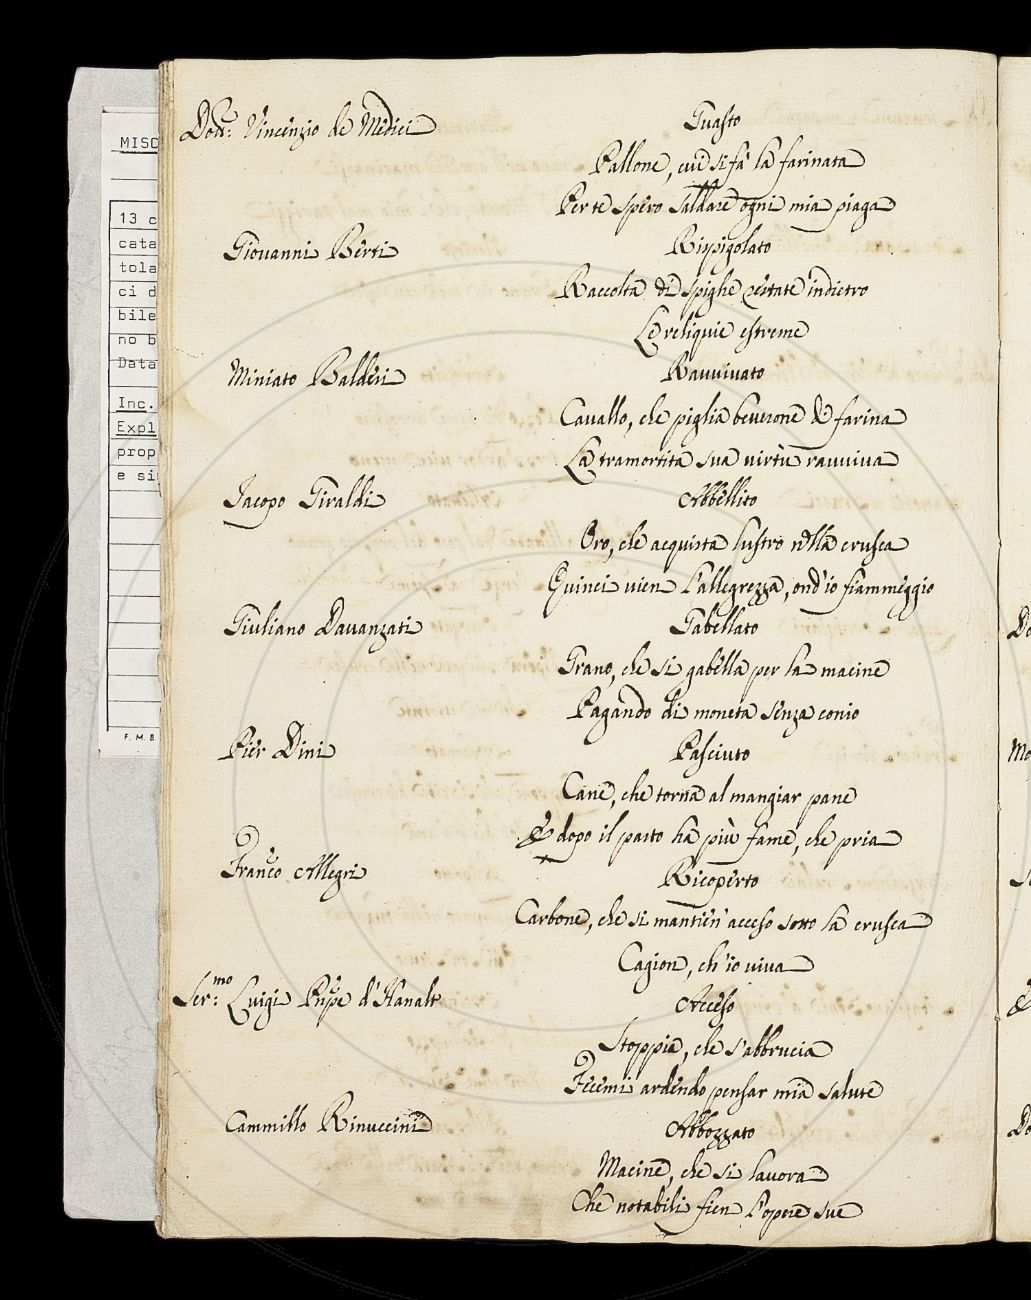 MISC
13 c
cata
tola
ci d
bile
no b
Data
Inc.
Expl
prop
e si
F. M. B
Dott: Vincenzio de Medici
Guasto
Pallone, cui si fà la farinata
Per te spero saldare ogni mia piaga
Giovanni Berti
Rispigolato
Raccolta di spighe restate indietro
Le reliquie estreme
Miniato Balderi
Ravvivato
Cavallo, che piglia beverone di farina
La tramortita sua virtù ravviva
Jacopo Giraldi
Abbellito
Oro, che acquista lustro nella crusca
Quinci vien l'allegrezza, ond'io fiammeggio
Giuliano Davanzati
Gabellato
Grano, che si gabella per la macine
Pagando di moneta senza conio
Pier Dini
Pasciuto
Cane, che torna al mangiar pane
E dopo il pasto ha più fame, che pria
Franco Allegri
Ricoperto
Carbone, che si mantien acceso sotto la crusca
Cagion, ch'io viva
Ser.mo Luigi Prpe d'Hanalt
Acceso
Stoppia, che s'abbrucia
Fecemi ardendo pensar mia salute
Cammillo Rinuccini
Abbozzato
Macine, che si lavora
Che notabili fien l'opere sue